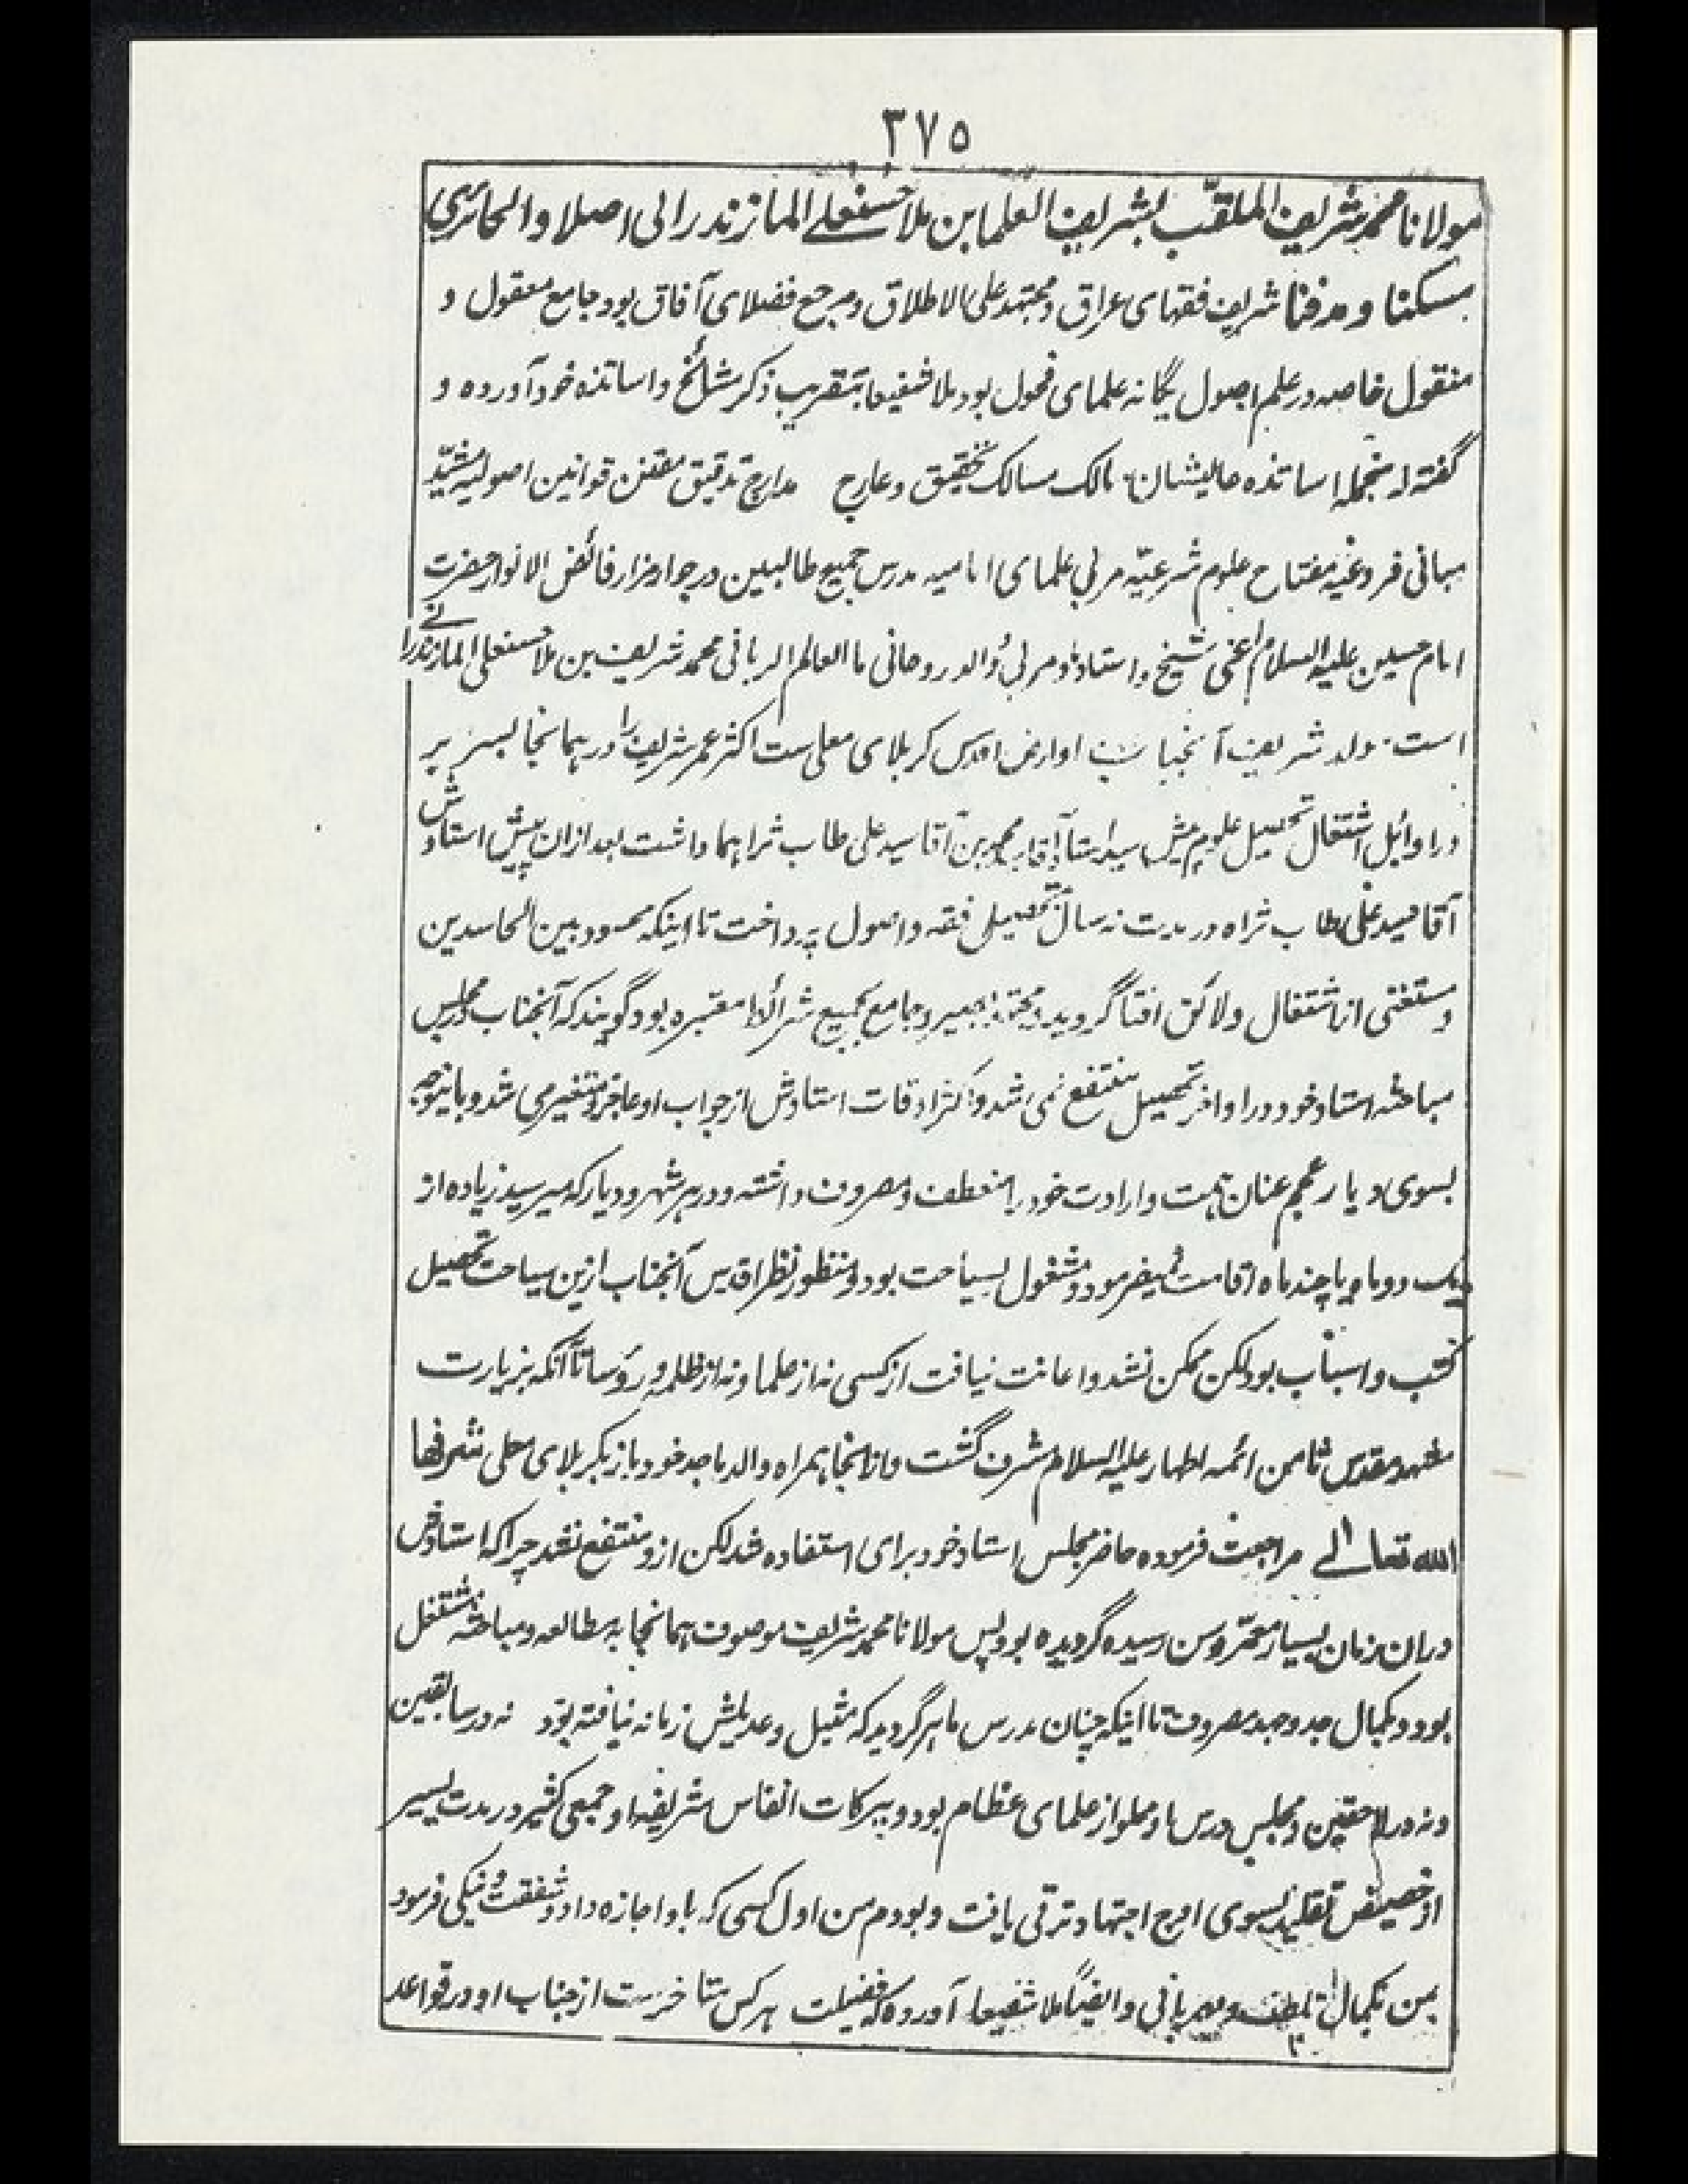 ٣٧٥
مولانا محمد شریف الملقّب بشریف العلما ابن ملا حسنعلے المازندرانی اصلا والحائری
مسکنا و مدفنا شریف فقهای عراق و مجتهد علی الاطلاق و مرجع فضلای آفاق بود جامع معقول و
منقول خاصه در علم اصول یگانه علمای فحول بود ملا شفیعا بتقریب ذکر مشائخ و اساتذه خود آورده و
گفته از منجمله اساتذه عالیشان سالک مسالک تحقیق و عارج مدارج تدقیق مقنن قوانین اصولیه مشیّد
مبانی فروعیّه مفتاح علوم شرعیّه مربی علمای امامیه مدرس جمیع طالبین در جوار مزار فائض الانوار حضرت
امام حسین علیه السلام اعنی شیخ و استاد ما و مربی و والد روحانی ما العالم الربانی محمد شریف بن ملا حسنعلی المازندرانے
است مولد شریف آنجناب ارض اقدس کربلای معلی ست اکثر عمر شریف را در همانجا بسر برد
در اوائل اشتغال تحصیل علوم پیش سید استاد آقا سید محمد بن آقا سید علی طاب ثراهما داشت بعد ازان پیش استادش
آقا سید علی طاب ثراه در مدت نه سال بتحصیل فقه و اصول پرداخت تا اینکه محسود بین الحاسدین
و مستغنی از اشتغال و لائق افتا گردید و مجتهد بصیر و جامع جمیع شرائط معتبره بود گویند که آنجناب در مجلس
مباحثه استاد خود در اواخر تحصیل منتفع نمی شد و اکثر اوقات استادش از جواب او عاجز و متغیر می شد و باینوجه
بسوی دیار عجم عنان همت و ارادت خود را منعطف و مصروف داشته و در هر شهر و دیار که میرسید زیاده از
یک دو ماه یا چند ماه اقامت نمیفرمود و مشغول بسیاحت بود و منظور نظر اقدس آنجناب ازین سیاحت تحصیل
کتب و اسباب بود لکن ممکن نشد و اعانت نیافت از کسی نه از علما و نه از ظلمه و رؤسا تا آنکه بزیارت
مشهد مقدس ثامن ائمه اطهار علیه السلام مشرف گشت و از انجا همراه والد ماجد خود باز بکربلای معلی شرفها
الله تعالے مراجعت فرموده حاضر مجلس استاد خود برای استفاده شد لکن ازو منتفع نشد چرا که استادش
دران زمان بسیار معمّر و سن رسیده گردیده بود پس مولانا محمد شریف موصوف همانجا به مطالعه و مباحثه مشتغل
بود و بکمال جد و جهد مصروف تا اینکه چنان مدرس ماهر گردید که مثیل و عدیلش زمانه نیافته بود نه در سابقین
و نه در لاحقین و مجلس درس او مملو از علمای عظام بود و ببرکات انفاس شریفه او جمعی کثیر در مدت یسیر
از حضیض تقلید بسوی اوج اجتهاد ترقی یافت و بودم من اول کسی که باو اجازه داد و شفقت و نیکی فرمود
بمن بکمال تلطف و مهربانی و ایضًا ملا شفیعا آورده که فضیلت هر کس متاخرست از جناب او در قواعد